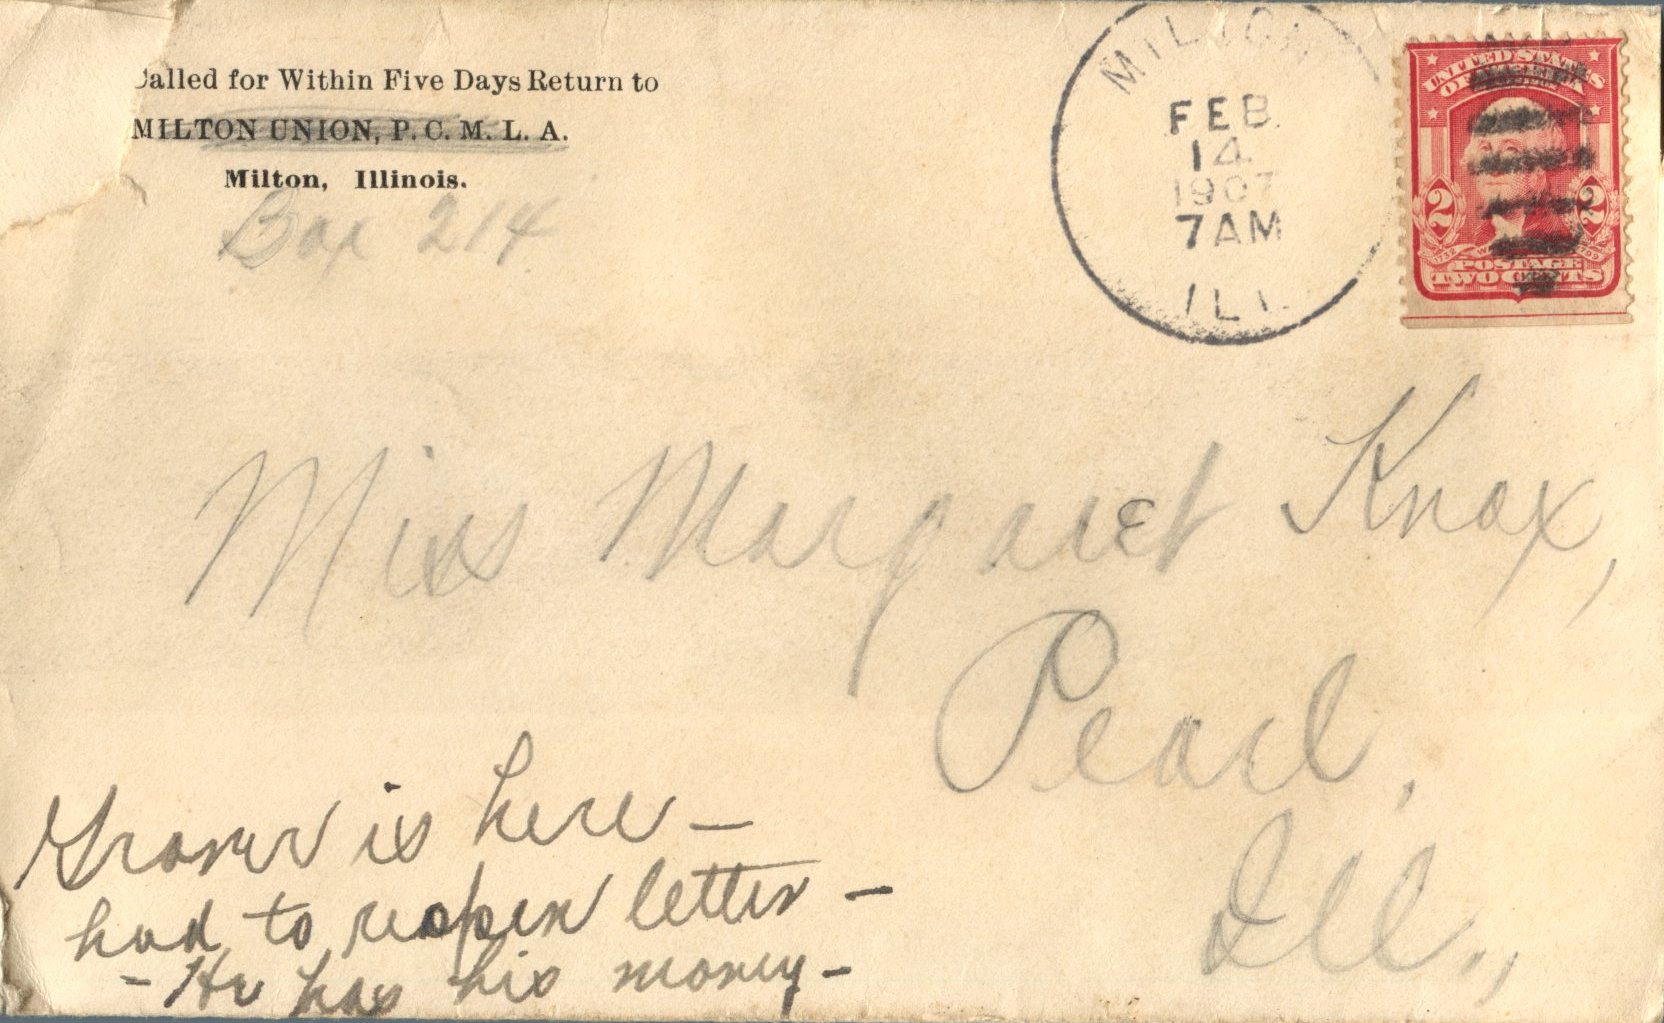 Called for Within Five Days Return to
MILTON UNION, P. C. M. L. A.
Milton, Illinois.
Box 214
MILTON
FEB
14
1907
7AM
ILL.
UNITED STATES
OF AMERICA
2 2
POSTAGE
TWO CENTS
Miss Margaret Knox,
Pearl,
Ill.,
Grover is here —
had to reopen letter —
- He has his money -